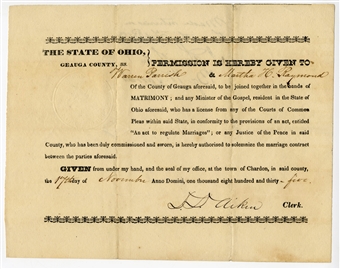 THE STATE OF OHIO, } PERMISSION IS HEREBY GIVEN TO
GEAUGA COUNTY, SS
Warren Parrish & Martha H. Raymond
Of the County of Geauga aforesaid, to be joined together in the bands of
MATRIMONY; and any Minister of the Gospel, resident in the State
of Ohio aforesaid, who has a license from any of the Courts of Common
Pleas within said State, in conformity to the provisions of an act, entitled
"An act to regulate Marriages"; or any Justice of the Peace in said
County, who has been duly commissioned and sworn, is hereby authorized to solemnize the marriage contract
between the parties aforesaid.
GIVEN from under my hand, and the seal of my office, at the town of Chardon, in said county,
the 17th day of November Anno Domini, one thousand eight hundred and thirty-five.
D. D. Aiken Clerk.